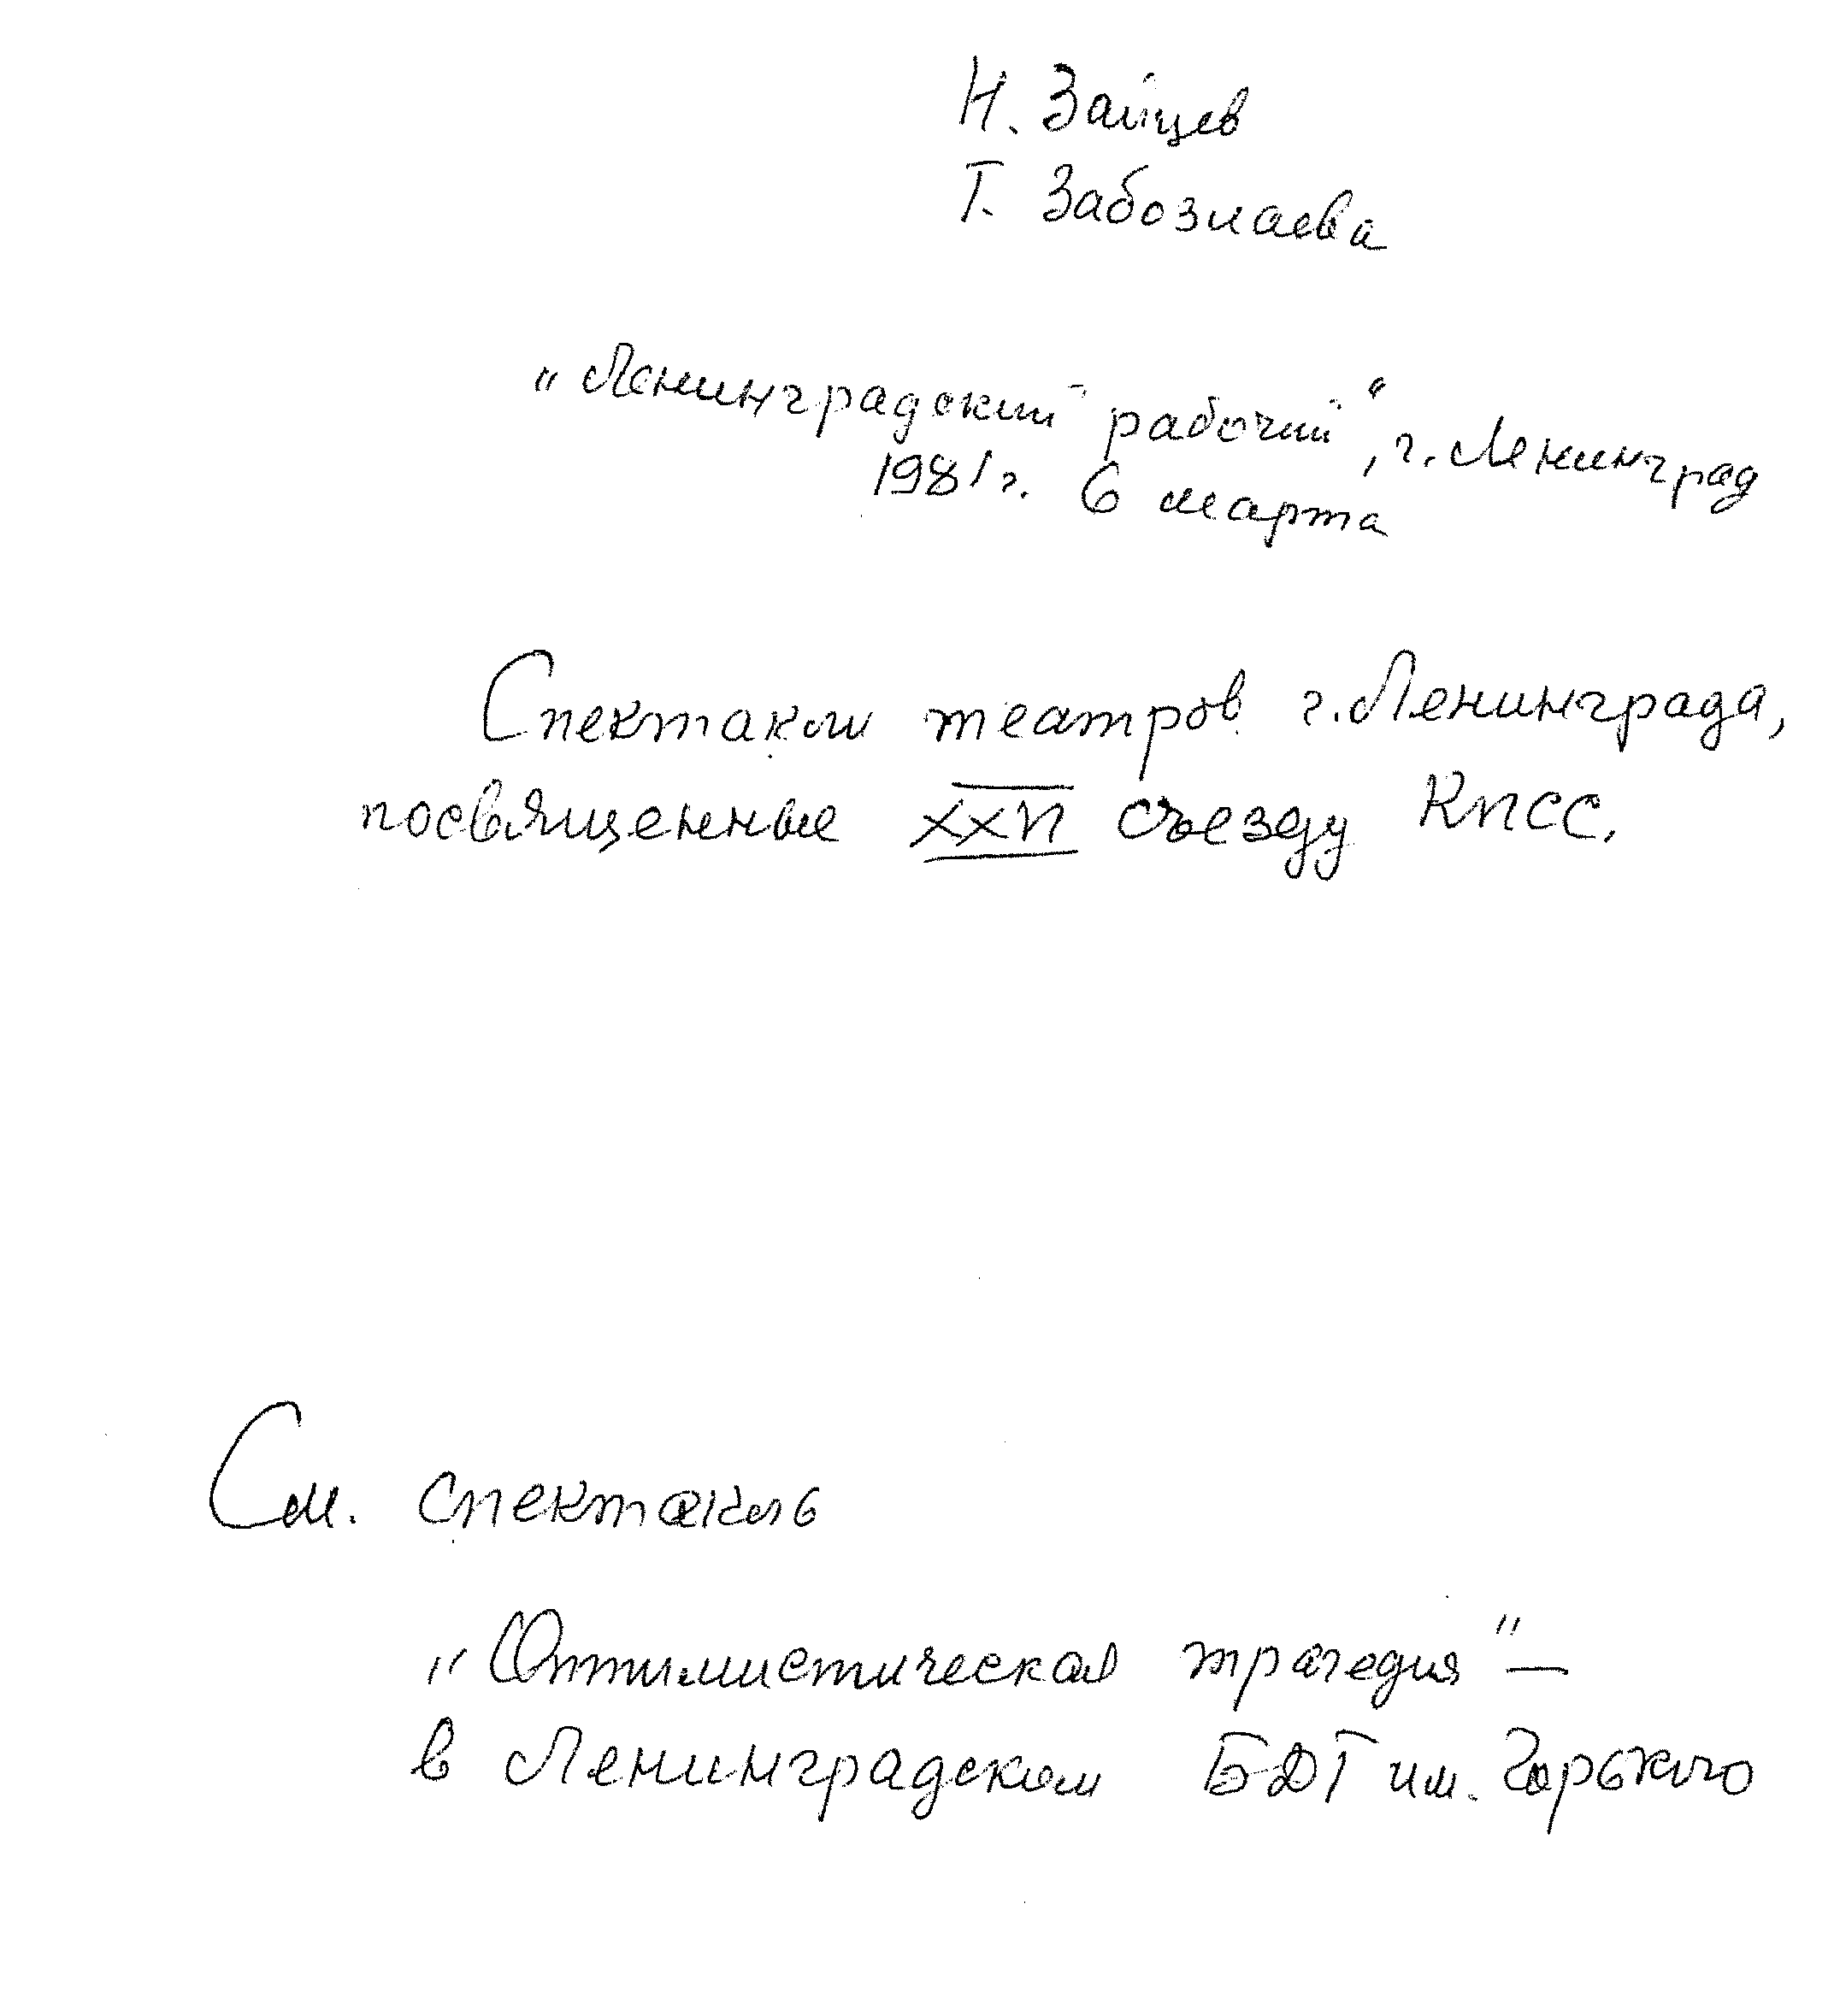 Н. Зайцев
Т. Забозлаева
"Ленинградский рабочий", г. Ленинград
1981 г. 6 марта
Спектакли театров г. Ленинграда,
посвященные XXVI съезду КПСС.
См. спектакль
"Оптимистическая трагедия" —
в Ленинградском БДТ им. Горького